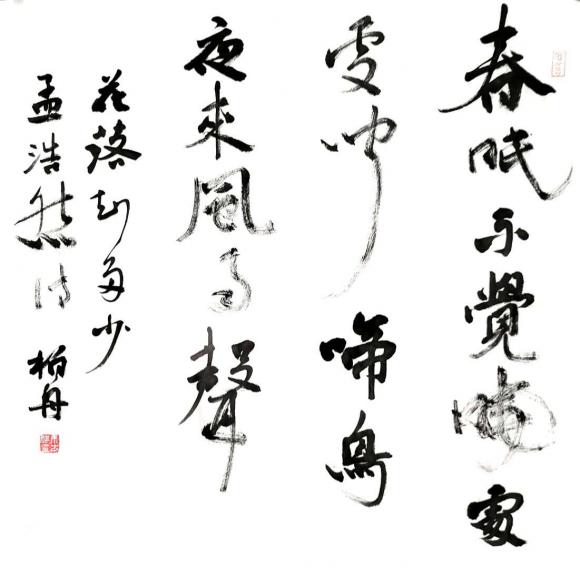 春眠不覺曉處
處聞啼鳥
夜來風雨聲
花落知多少
孟浩然诗 柏丹